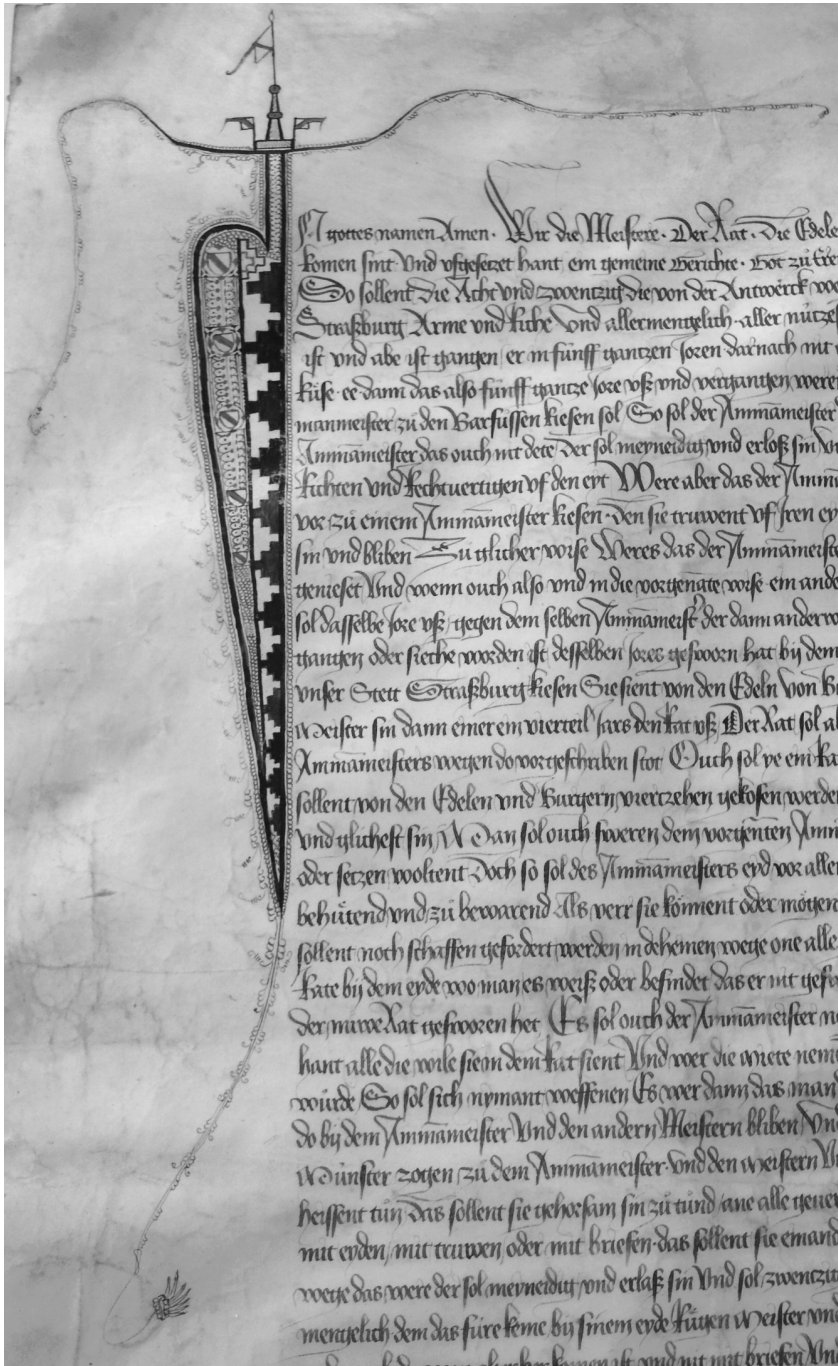 In gottes namen Amen. Wir die Meistere. Der Rat. Die Edele
komen sint Vnd vfgesetzet hant ein gemeine Gerichte. Got zů Ere
So sollent die Acht vnd zwentzig die von der Antwerck
Straßburg Arme vnd Riche Vnd allermengelich aller nútze
ist vnd abe ist gangen er in fúnff gantzen Joren darnach nit
kúse ee dann das also fúnff gantze Jore vß vnd vergangen were
manmeister zů den Barfússen kiesen sol So sol der Am̄ameister
Am̄ameister das ouch nit dete Der sol meyneidig vnd erloß sin
Richten vnd Rechtuertigen vf den eyt Were aber das der
vor zů einem Am̄ameister kiesen. den sie truwent vf Jren ey
sin vnd bliben Zu glicher wise Weres das der Am̄ameiste
genieset Vnd wenn ouch also vnd in die vorgenāte wise ein ande
sol dasselbe Jore vß gegen dem selben Am̄ameister der dann anderwe
gangen oder sieche worden ist desselben Jores gesworn hat bij dem
vnser Stett Straßburg kiesen Sie sient von den Edeln von
Meister sin dann einer ein vierteil Jars den Rat vß Der Rat sol
Am̄ameisters wegen do vorgeschriben stot Ouch sol ye ein
sollent von den Edelen vnd Burgern viertzehen gekosen werden
vnd glichest sin Man sol ouch sweren dem vorgen̄ten
oder setzen woltent Doch so sol des Am̄ameisters eyd vor allen
behútend vnd zů bewarend Als verr sie kónnent oder mógen
sollent noch schaffen gefordert werden in deheinen wege one alle
Rate bij dem eyde wo man es weiß oder befindet das er nit
der nuwe Rat gesworen het Es sol ouch der Am̄ameister
hant alle die wile sie in dem Rat sient Vnd wer die miete
wúrde So sol sich nymant weffenen Es wer dann das man
do bij dem Am̄ameister Vnd den andern Meistern bliben
Múnster zogen zů dem Am̄ameister vnd den Meistern
heissent tůn Das sollent sie gehorsam sin zů tůnd ane alle geuer
mit eyden, mit truwen, oder mit briefen. das sóllent sie einand
wege das were der sol meyneidig vnd erlaß sin Vnd sol zwentzig
mengelich dem das fúre keme bij sinem eyde Rúgen Meister vnd